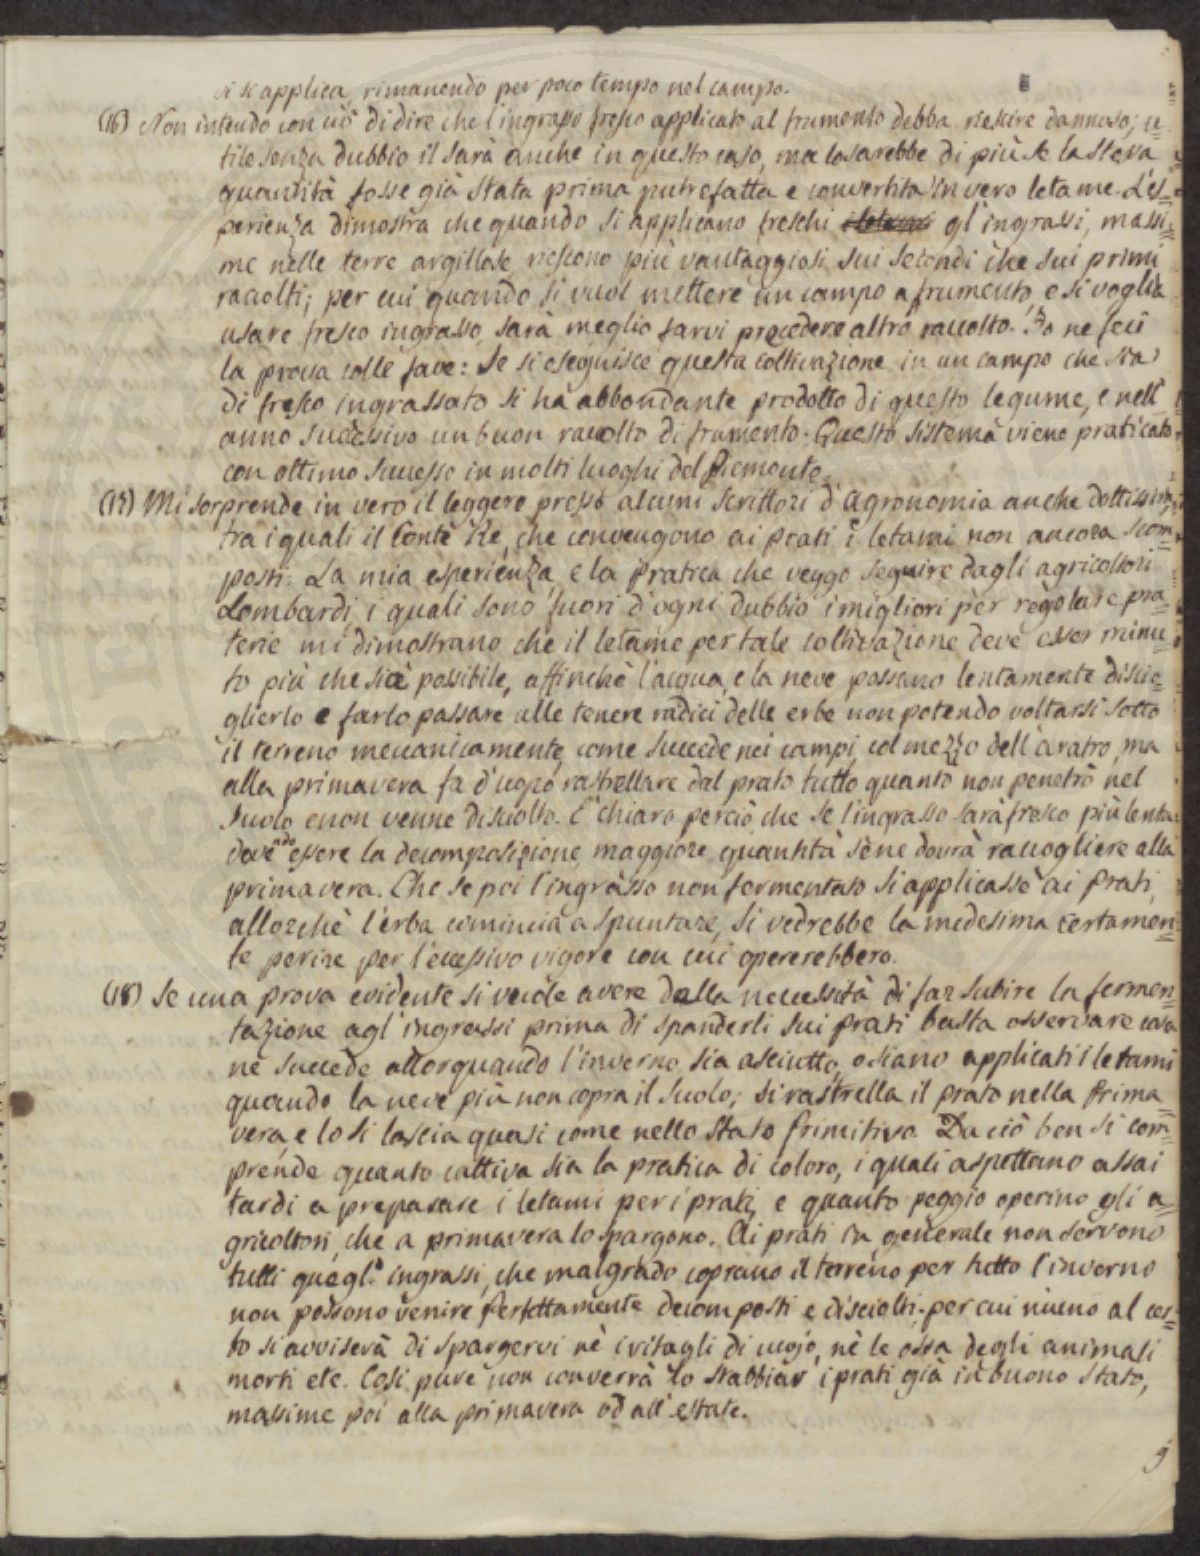 vi si applica, rimanendo per poco tempo nel campo.
(16) Non intendo con ciò di dire che l'ingrasso fresco applicato al frumento debba riescire dannoso; u=
tile senza dubbio il sarà anche in questo caso, ma lo sarebbe di più se la stessa
quantità fosse già stata prima putrefatta e convertita in vero letame. L'es=
perienza dimostra che quando si applicano freschi gl'ingrassi, massi=
me nelle terre argillose, riescono più vantaggiosi sui secondi che sui primi
raccolti; per cui quando si vuol mettere un campo a frumento, e si voglia
usare fresco ingrasso, sarà meglio farvi precedere altro raccolto. Io ne feci
la prova colle fave: Se si eseguisce questa coltivazione in un campo che sia
di fresco ingrassato si ha abbondante prodotto di questo legume, e nell'
anno successivo un buon raccolto di frumento. Questo sistema viene praticato
con ottimo successo in molti luoghi del Piemonte.
(17) Mi sorprende in vero il leggere presso alcuni scrittori d'Agronomia anche dottissimi,
tra i quali il Conte Re, che convengono ai prati i letami non ancora scom=
posti. La mia esperienza, e la pratica che veggo seguire dagli agricoltori
Lombardi, i quali sono fuori d'ogni dubbio i migliori per regolare pra=
terie mi dimostrano che il letame per tale coltivazione deve esser minu=
to più che sia possibile, affinchè l'acqua, e la neve possano lentamente discio=
glierlo e farlo passare alle tenere radici delle erbe non potendo voltarsi sotto
il terreno meccanicamente, come succede nei campi, col mezzo dell'aratro, ma
alla primavera fa d'uopo rastrellare dal prato tutto quanto non penetrò nel
suolo e non venne disciolto. E' chiaro perciò, che se l'ingrasso sarà fresco più lenta
dovendo essere la decomposizione, maggiore quantità se ne dovrà raccogliere alla
primavera. Che se poi l'ingrasso non fermentato si applicasse ai prati,
allorchè l'erba comincia a spuntare, si vedrebbe la medesima certamen=
te perire per l'eccessivo vigore con cui opererebbero.
(18) Se una prova evidente si vuole avere della necessità di far subire la fermen=
tazione agl'ingrassi prima di spanderli sui prati basta osservare cosa
ne succede allorquando l'inverno sia asciutto, o siano applicati i letami
quando la neve più non copra il suolo; si rastrella il prato nella Prima=
vera, e lo si lascia quasi come nello stato primitivo. Da ciò ben si com=
prende quanto cattiva sia la pratica di coloro, i quali aspettano assai
tardi a preparare i letami per i prati, e quanto peggio operino gli a=
gricoltori, che a primavera lo spargono. Ai prati in generale non servono
tutti quegl'ingrassi, che malgrado coprano il terreno per tutto l'inverno
non possono venire perfettamente decomposti e disciolti; per cui niuno al cer=
to si avviserà di spargervi nè i ritagli di cuojo, nè le ossa degli animali
morti etc. Così pure non converrà lo stabbiar i prati già in buono stato,
massime poi alla primavera od all'estate.
9